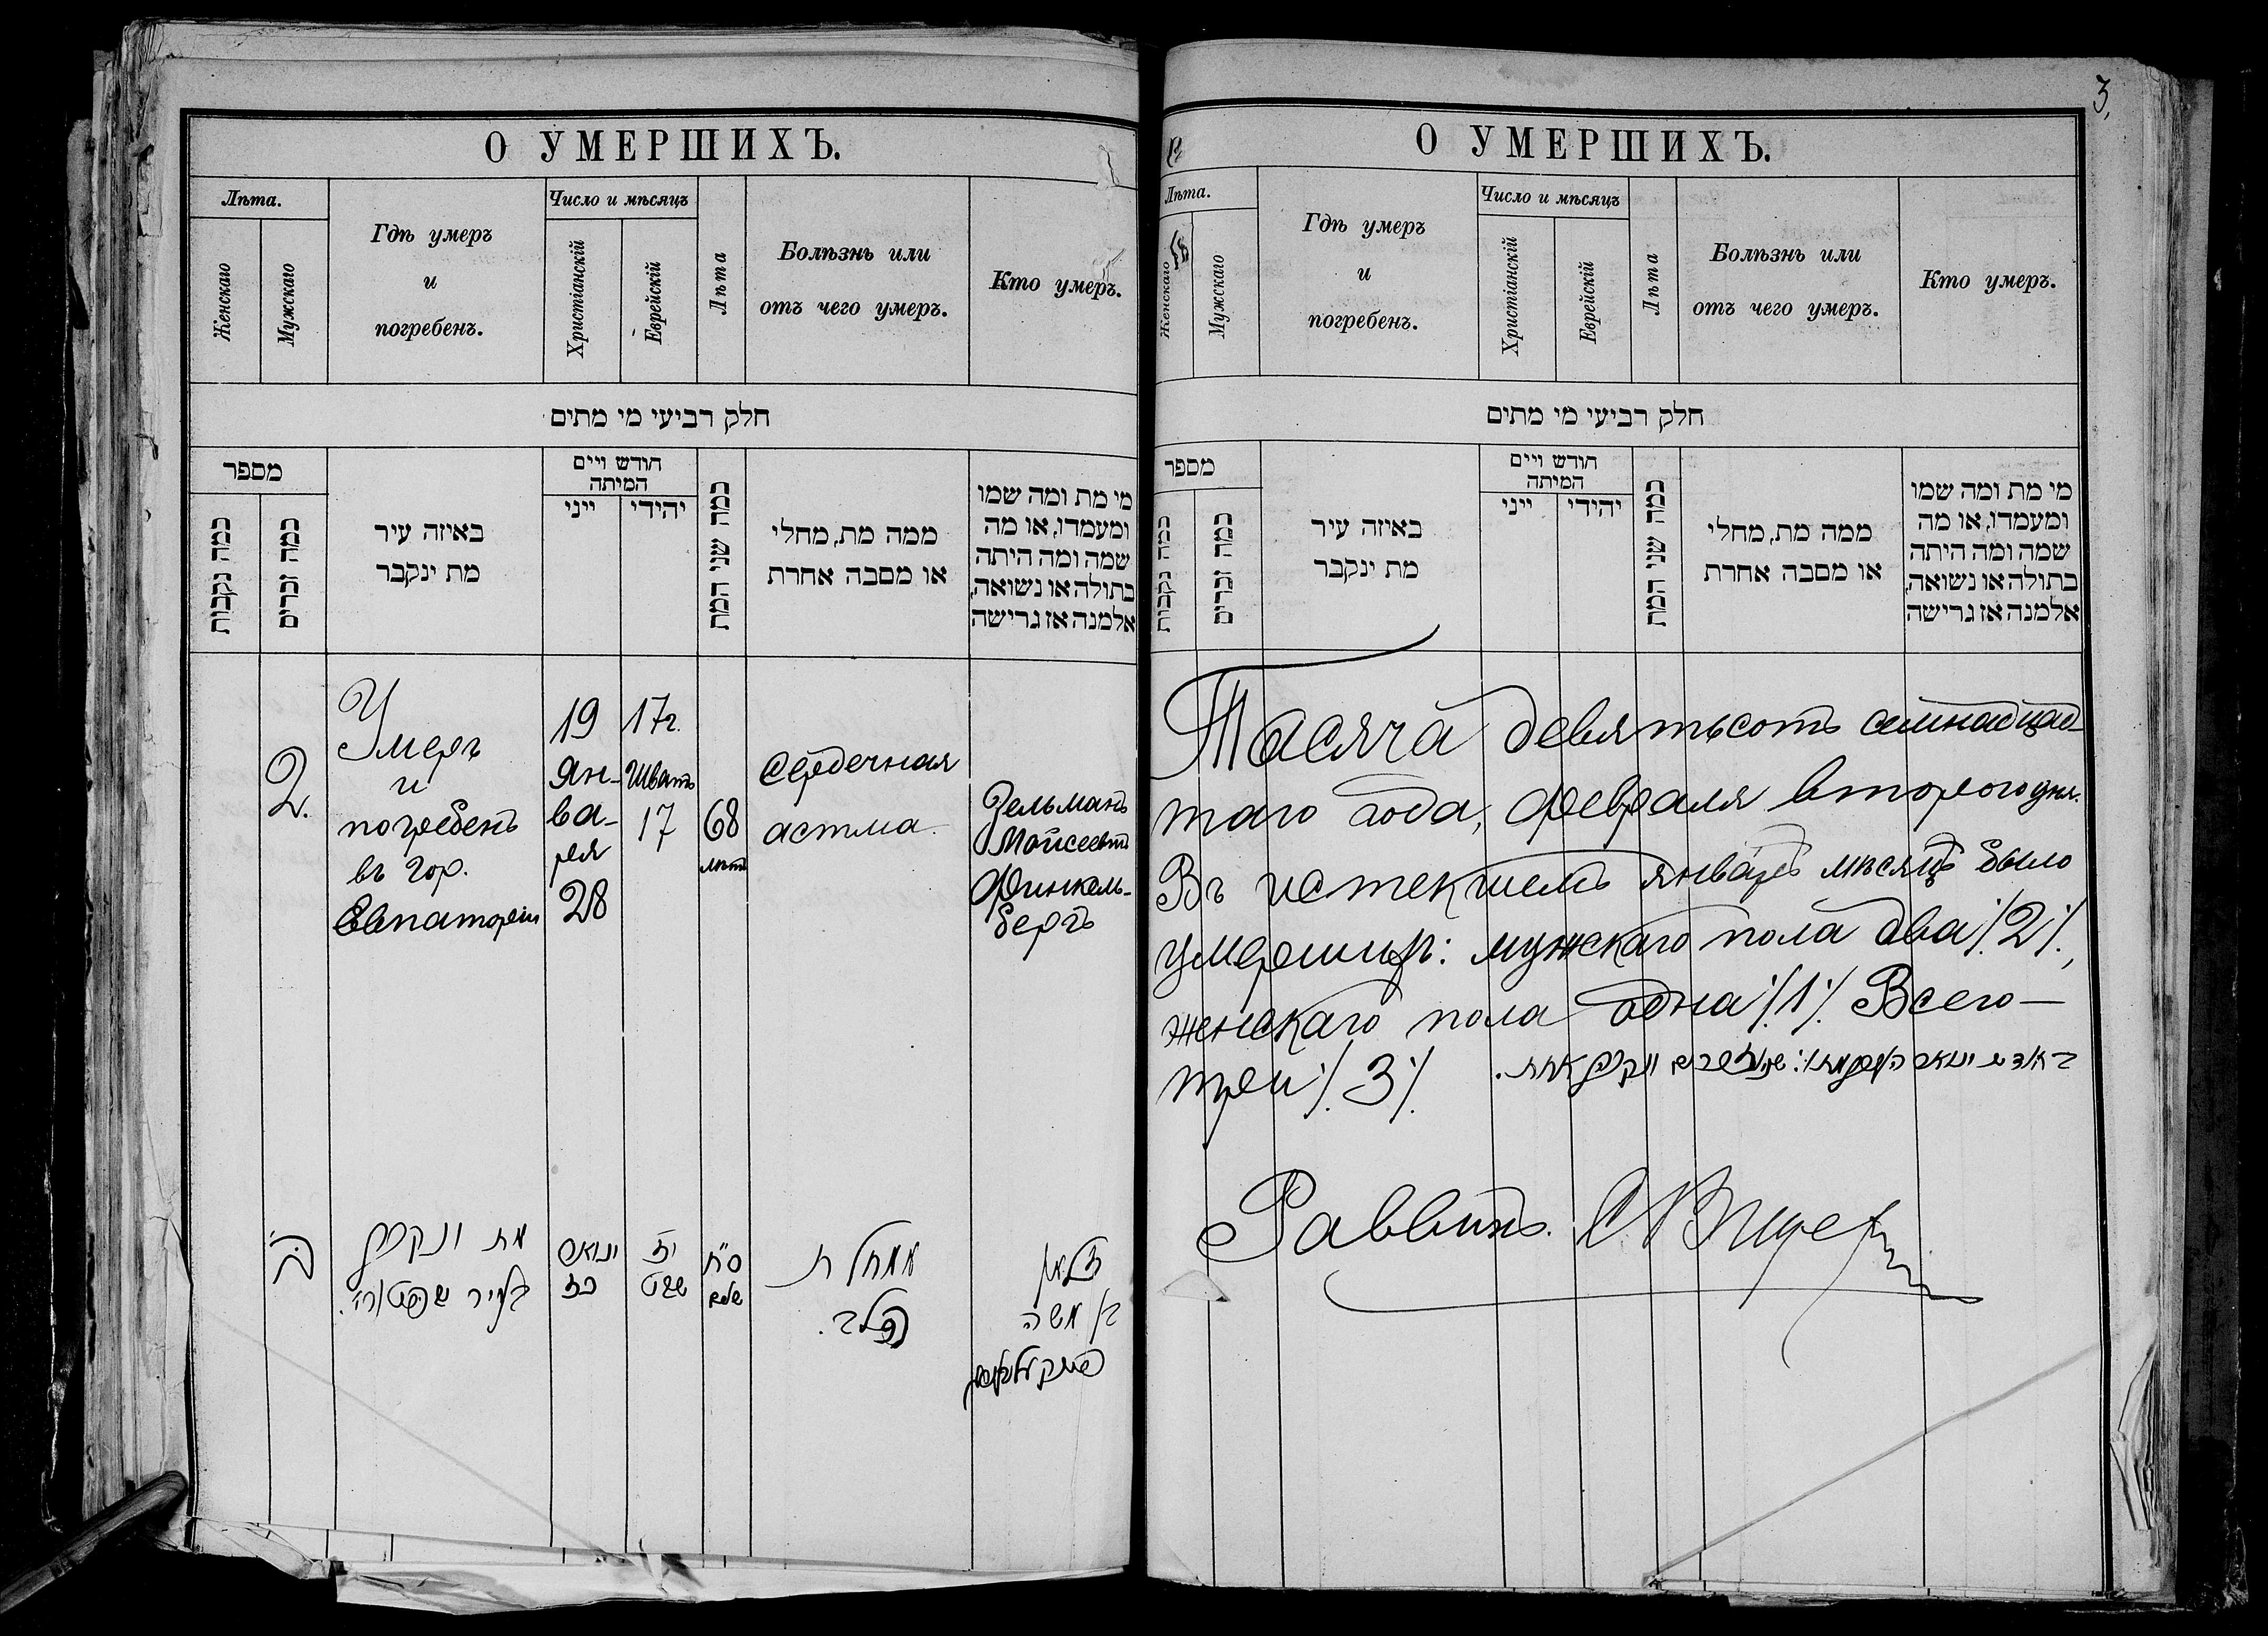 О УМЕРШИХЪ.
Лѣта.
Женскаго
Мужскаго
Гдѣ умеръ
и
погребенъ.
Число и мѣсяцъ
Христіанскій
Еврейскій
Лѣта
Болѣзнь или
отъ чего умеръ.
Кто умеръ.
חלק רביעי מי מתים
מספר
כמה נקבות
כמה זכרים
באיזה עיר
מת ינקבר
חודש ויים
המיתה
ייני
יהידי
כמה שני המת
ממה מת, מחלי
או מסבה אחרת
מי מת ומה שמו
ומעמדו, או מה
שמה ומה היתה
בתולה או נשואה,
אלמנה אז גרישה
2.
Умеръ
и
погребенъ
въ гор.
Евпаторіи
19
Ян-
ва-
ря
28
17г.
Шватъ
17
68
лѣтъ
Сердечная
астма.
Зельманъ
Моисеевъ
Финкель-
бергъ
ב
מת ונקבר
בעיר
ינואר
יז
שבט
ס"ח
שנים
ממחלת
הלב.
זלמן
בן משה
3,
О УМЕРШИХЪ.
Лѣта.
Женскаго
Мужскаго
Гдѣ умеръ
и
погребенъ.
Число и мѣсяцъ
Христіанскій
Еврейскій
Лѣта
Болѣзнь или
отъ чего умеръ.
Кто умеръ.
חלק רביעי מי מתים
מספר
כמה נקבות
כמה זכרים
באיזה עיר
מת ינקבר
חודש ויים
המיתה
ייני
יהידי
כמה שני המת
ממה מת, מחלי
או מסבה אחרת
מי מת ומה שמו
ומעמדו, או מה
שמה ומה היתה
בתולה או נשואה,
אלמנה אז גרישה
Тысяча девятьсотъ семнадцад-
таго года, февраля второго дня.
Въ истекшемъ январѣ мѣсяцѣ было
умершихъ: мужскаго пола два /2/,
женскаго пола одна /1/. Всего—
три /3/.
Раввинъ.